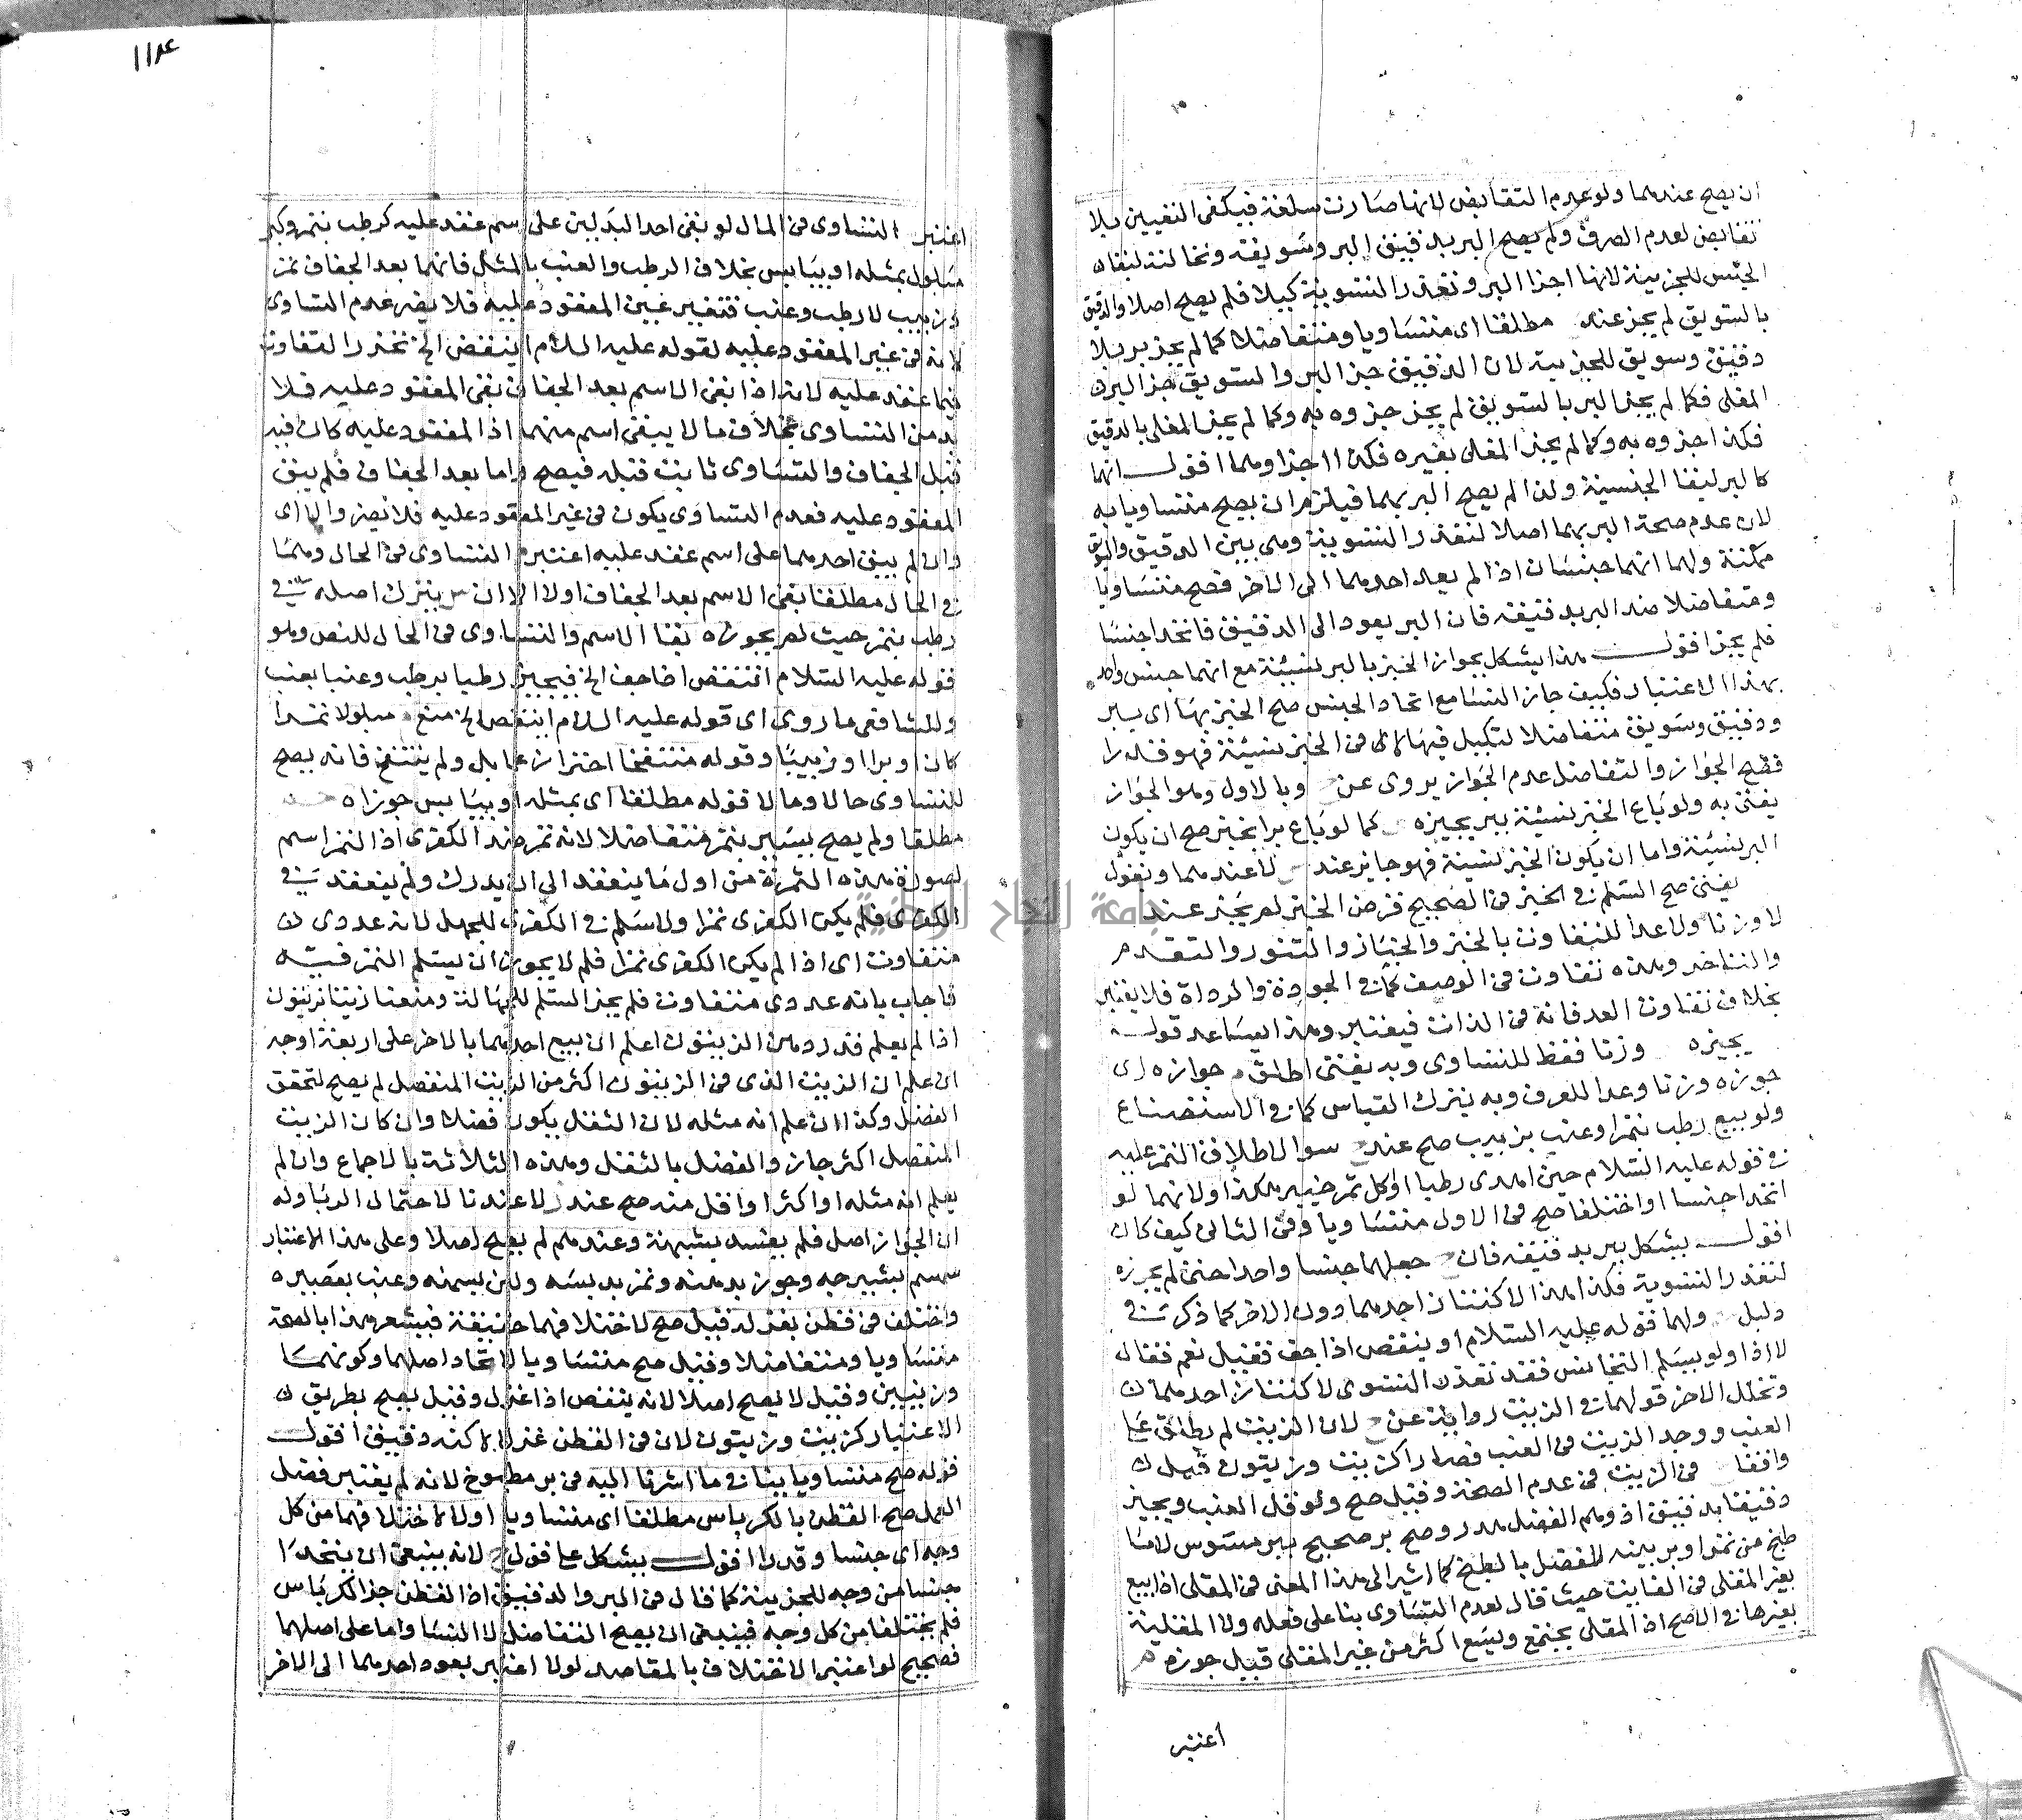 ان يصح عندهما ولو عدم التقابض لانها صارت سلعة فيكفى التعيين بلا
تقابض لعدم الصرف ولم يصح البر بدقيق البر وسويقه ونخالته لبقاء
الجنس للجزيئة لانها اجزا البر وتعذر التسوية كيلا فلم يصح اصلا والدقيق
بالسويق لم يجز عند مطلقا اى متساويا ومتفاضلا كما لم يجز بر بلا
دقيق وسويق للجزيية لان الدقيق جز البر والسويق جز البر
المقلى فكما لم يجز البر بالسويق لم يجز جزوه به وكما لم يجز المقلى بالدقيق
فكذا جزوه به وكما لم يجز المقلى بغيره فكذا اجزاوهما اقول انهما
كالبر لبقا الجنسية ولذا لم يصح البر بهما فيلزم ان يصح متساويا به
لان عدم صحة البر بهما اصلا لتعذر التسوية وهى بين الدقيق والسويق
ممكنة ولهما انهما جنسان اذا لم يعد احدهما الى الاخر فصح متساويا
ومتفاضلا ضد البر بدقيقه فان البر يعود الى الدقيق فاتحدا جنسا
فلم يجز اقول هذا يشكل بجواز الخبز بالبر نسيئة مع انهما جنس واحد
بهذا الاعتبار فكيف جاز النسا مع اتحاد الجنس صح الخبز بها اى ببر
ودقيق وسويق متفاضلا لتكيل فيها لا فى الخبز نسيئة فهو قدرا
فصح الجواز والتفاضل عدم الجواز يروى عن وبالاول وهو الجواز
يفتى به ولو باع الخبز نسيئة ببر يجيزه كما لو باع برا بخبز صح ان يكون
البر نسيئة واما ان يكون الخبز نسيئة فهو جايز عند لا عندهما ونقول
يفتى صح السلم فى الخبز فى الصحيح قرض الخبز لم يجز عند
لا وزنا ولا عدا للتفاوت بالخبز والخباز والتنور والتقدم
والتاخر وهذه تفاوت فى الوصف كما فى الجودة والرداة فلا يعتبر
بخلاف تفاوت العد فانه فى الذات فيعتبر وهذا يساعد قول
يجيزه وزنا فقط للتساوى وبه يفتى اطلق جوازه اى
جوزه وزنا وعدا للعرف وبه يترك القياس كما فى الاستصناع
ولو بيع رطب بتمر او عنب بزبيب صح عند سوا لاطلاق التمر عليه
فى قوله عليه السلام حين اهدى رطبا او كل تمر خيبر هكذا ولانهما لو
اتحدا جنسا او اختلفا صح فى الاول متساويا وفى الثانى كيف كان
اقول يشكل ببر بدقيقه فان جعلهما جنسا واحدا حتى لم يجوزه
لتعذر التسوية فكذا هذا لاكتناز احدهما دون الاخر كما ذكر فى
دليل ولهما قوله عليه السلام او ينقص اذا جف فقيل نعم فقال
لا اذا ولو يسلم التجانس فقد تعذر التسوى لاكتناز احدهما
وتخلل الاخر قولهما فى الزبيب رواية عن لان الزبيب لم يطلق على
العنب ووجد الزبيب فى العنب فصارا كزيت وزيتون قيل
وافقا فى الزبيب فى عدم الصحة وقيل صح ولو قل العنب ويجيز
دقيقا بدقيق اذ وهم الفضل هدر وصح بر صحيح ببر مسوس لا ما
طبخ من تمر او بر بينه للفضل بالطبخ كما اشير الى هذا المعنى فى المقلى اذا بيع
بغير المقلى فى الفايت حيث قال لعدم التساوى بنا على فعله ولا المقلية
بغيرها فى الاصح اذ المقلى يجتمع ويسع اكثر من غير المقلى قبيل جوزه
اعتبر
١١٤
اعتبر التساوى فى المال لو بقى احد البدلين على اسم عقد عليه كرطب بتمر وكبر
مبلول بمثله او بيابس بخلاف الرطب والعنب بالمثل فانهما بعد الجفاف تمر
وزبيب لا رطب وعنب فتغير عين المعقود عليه فلا يضر عدم التساوى
لانه فى غير المعقود عليه لقوله عليه السلام اينقص الخ تحذر التفاوت
فيما عقد عليه لانه اذا بقى الاسم بعد الجفاف بقى المعقود عليه فلا
بد من التساوى بخلاف ما لا يبقى اسم منهما اذ المعقود عليه كان فيه
قبل الجفاف والتساوى ثابت قبله فيصح واما بعد الجفاف فلم يبق
المعقود عليه فعدم التساوى يكون فى غير المعقود عليه فلا يضر والا اى
وان لم يبق احدهما على اسم عقد عليه اعتبر التساوى فى الحال وهما
فى الحال مطلقا بقى الاسم بعد الجفاف اولا الا ان يترك اصله فى
رطب بتمر حيث لم يجوزه بقا الاسم والتساوى فى الحال للنص وهو
قوله عليه السلام اتنقص اذا جف الخ فيجيز رطبا برطب وعنبا بعنب
وللشافعى ما روى اى قوله عليه السلام اينقص الخ منع مبلولا تمرا
كان او برا او زبيبا وقوله منتفخا احتراز عما بل ولم ينتفخ فانه يصح
للتساوى حالا ومالا قوله مطلقا اى بمثله او بيابس جوزاه
مطلقا ولم يصح بيسير بتمر متفاضلا لانه تمر ضد الكفرى اذ التمر اسم
لصورة هذه الثمرة من اول ما ينعقد الى ان يدرك ولم ينعقد فى
الكفرى فلم يكن الكفرى تمرا ولا سلم فى الكفرى للجهل لانه عددى
متفاوت اى اذا لم يكن الكفرى تمرا فلم لا يجوز ان يسلم التمر فيه
فاجاب بانه عددى متفاوت فلم يجز السلم للجهالة ومنعنا زيتا بزيتون
اذا لم يعلم قدر دهن الزيتون اعلم ان بيع احدهما بالاخر على اربعة اوجه
ان علم ان الزيت الذى فى الزيتون اكثر من الزيت المنفصل لم يصح لتحقق
الفضل وكذا ان علم انه مثله لان الثفل يكون فضلا وان كان الزيت
المنفصل اكثر جاز والفضل بالثفل وهذه الثلاثة بالاجماع وان لم
يعلم انه مثله او اكثر او اقل منه صح عند لا عندنا لاحتمال الربا وله
ان الجواز اصل فلم يفسد بشبهة وعندهم لم يصح اصلا وعلى هذا الاعتبار
سمسم بشيرجه وجوز بدهنه وتمر بدبسه ولبن بسمنه وعنب بعصيره
واختلف فى قطن بغزله فقيل صح لاختلافهما حقيقة فيشعر هذا بالصحة
متساويا ومتفاضلا وقيل صح متساويا لاتحاد اصلهما وكونهما
وزنيين وقيل لا يصح اصلا لانه ينقص اذا غزل وقيل يصح بطريق
الاعتبار كزيت وزيتون لان فى القطن غزلا لكنه دقيق اقول
قوله صح متساويا ينافى ما اشرنا اليه فى بر مطبوخ لانه لم يعتبر فضل
العمل صح القطن بالكرباس مطلقا اى متساويا اولا لاختلافهما من كل
وجه اى جنسا وقدرا اقول يشكل على قول لانه ينبغى ان يتحدا
جنسا من وجه للجزيئة كما قال فى البر والدقيق اذ القطن جز الكرباس
فلم يختلفا من كل وجه فينبغى ان يصح التفاضل لا النسا واما على اصلهما
فصحيح لو اعتبر الاختلاف بالمقاصد لو لا اعتبر يعود احدهما الى الاخر
جامعة النجاح الوطنية